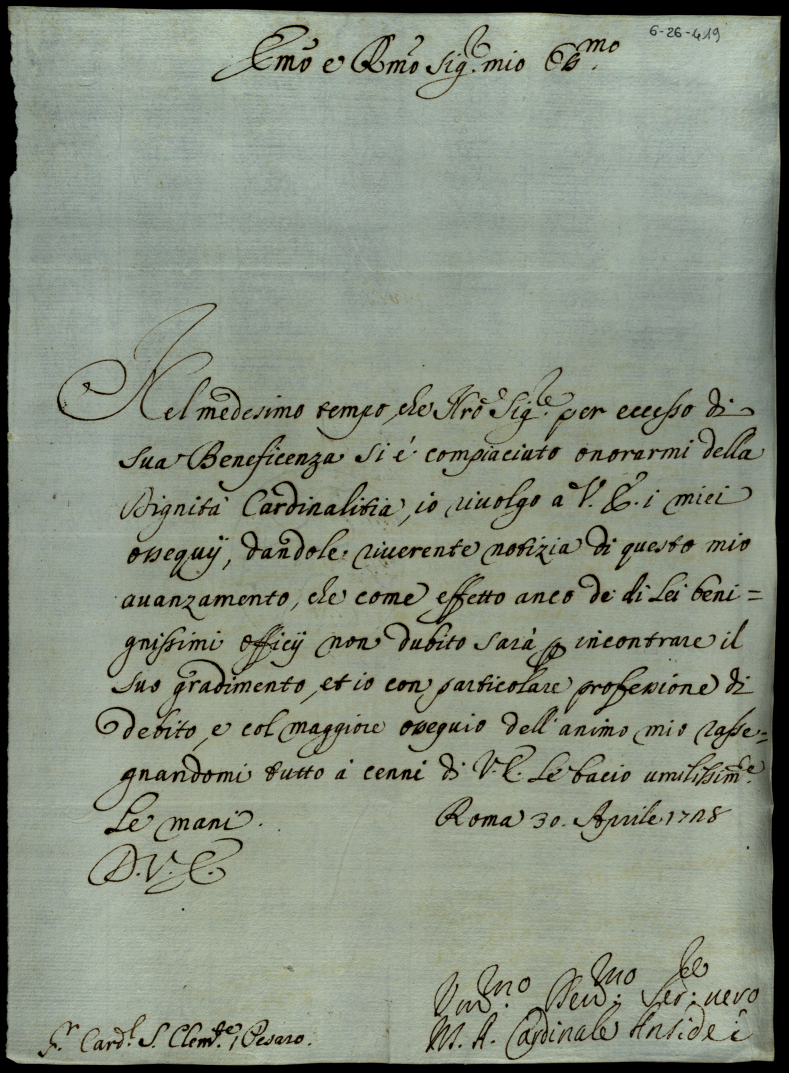 6-26-419
Emo e Rmo Sig.re mio Ob.mo
Nel medesimo tempo, che Nro Sig.re per eccesso di
sua Beneficenza si é compiaciuto onorarmi della
Dignità Cardinalitia, io rivolgo a V. E. i miei
ossequij, dandole riverente notizia di questo mio
avanzamento, che come effetto anco de di Lei beni=
gnissimi officij non dubito sarà p incontrare il
suo gradimento, et io con particolare professione di
debito, e col maggiore ossequio dell'animo mio rasse=
gnandomi tutto à cenni di V. E. Le bacio umilissim.te
Le mani.
Roma 30. Aprile 1728
D. V. E.
Um.mo Dev.mo Ser. vero
M. A. Cardinale Ansidei
S.r Card.l S. Clem.te, Pesaro.